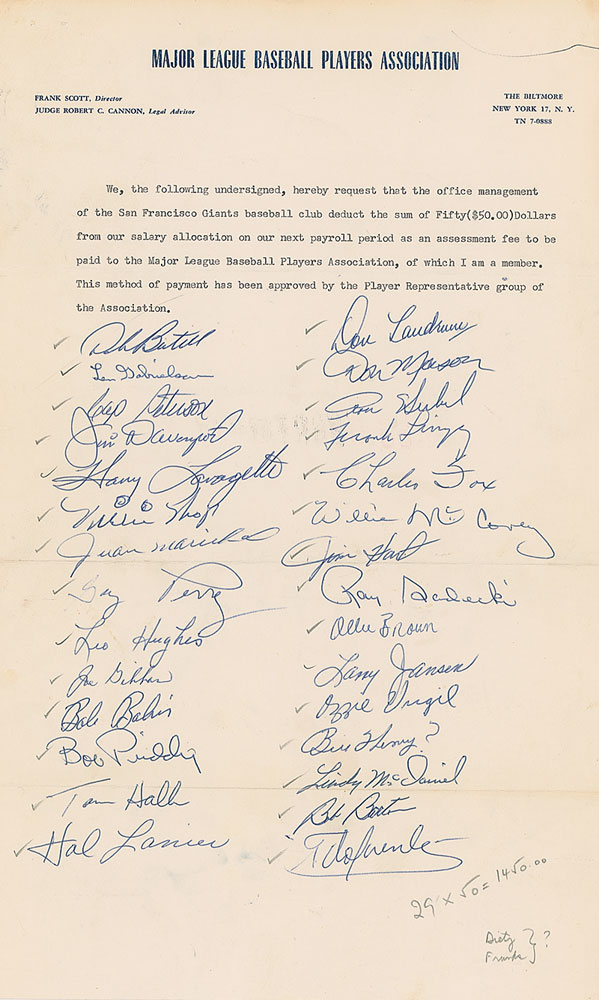 MAJOR LEAGUE BASEBALL PLAYERS ASSOCIATION
FRANK SCOTT, Director
JUDGE ROBERT C. CANNON, Legal Advisor
THE BILTMORE
NEW YORK 17, N. Y.
TN 7-0888
We, the following undersigned, hereby request that the office management
of the San Francisco Giants baseball club deduct the sum of Fifty($50.00)Dollars
from our salary allocation on our next payroll period as an assessment fee to be
paid to the Major League Baseball Players Association, of which I am a member.
This method of payment has been approved by the Player Representative group of
the Association.
Len Gabrielson
Jim Davenport
Harry Lavagetto
Willie Mays
Juan Marichal
Gay Perry
Leo Hughes
Joe Gibbon
Bob Bolin
Bob Priddy
Tom Haller
Hal Lanier
Don Landrum
Don Mason
Charles Fox
Willie McCovey
Jim Hart
Ray Sadecki
Ollie Brown
Larry Jansen
Ozzie Virgil
Bill Henry?
Lindy McDaniel
Bob Barton
T Fuentes
29 x 50 = 1450.00
Dietz } ?
Franks